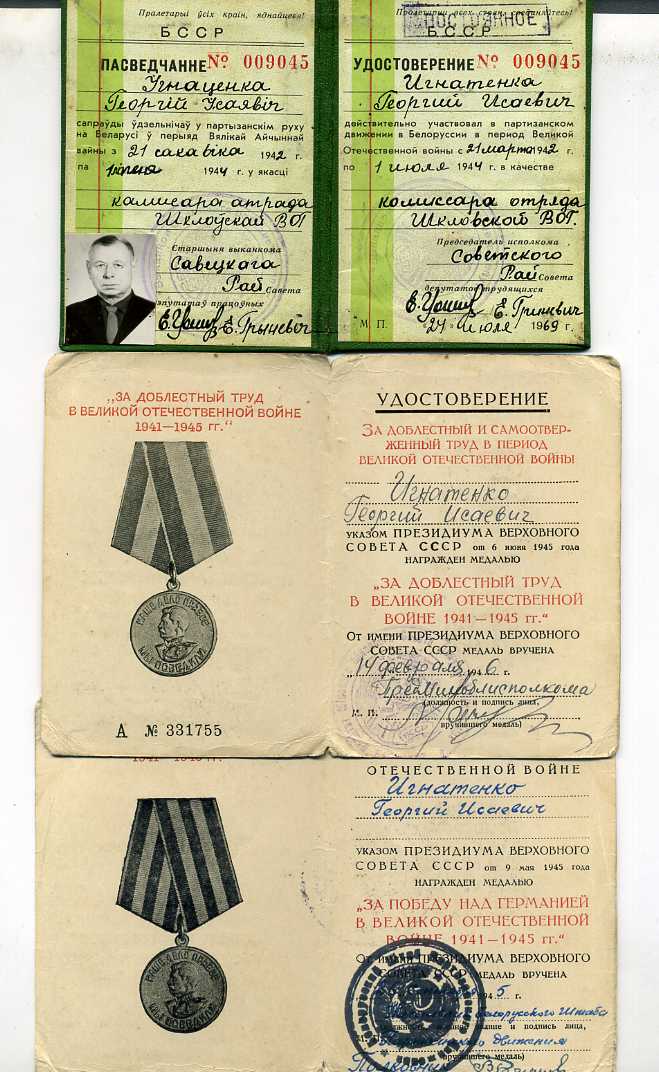 Пралетарыі ўсіх краін, яднайцеся!
БССР
ПАСВЕДЧАННЕ № 009045
Игнаценка
Георгій Ісаявіч
сапраўды ўдзельнічаў у партызанскім руху
на Беларусі ў перыяд Вялікай Айчыннай
вайны з 21 сакавіка 1942 г.
па 1944 г. у якасці
камисара атрада
Шклоўскай ВОГ
Старшыня выканкома
Савецкага
Рай Савета
дэпутатаў працоўных
Е. Грыневіч
Пролетарии всех стран, соединяйтесь!
БССР
УДОСТОВЕРЕНИЕ № 009045
Игнатенка
Георгий Исаевич
действительно участвовал в партизанском
движении в Белоруссии в период Великой
Отечественной войны с 21 марта 1942 г.
по 1 июля 1944 г. в качестве
комиссара отряда
Шкловской ВОГ.
Председатель исполкома
Советского
Рай Совета
депутатов трудящихся
Е. Гриневич
М. П. 24 июля 1969 г.
„ЗА ДОБЛЕСТНЫЙ ТРУД
В ВЕЛИКОЙ ОТЕЧЕСТВЕННОЙ ВОЙНЕ
1941—1945 гг.“
НАШЕ ДЕЛО ПРАВОЕ
МЫ ПОБЕДИЛИ
А № 331755
УДОСТОВЕРЕНИЕ
ЗА ДОБЛЕСТНЫЙ И САМООТВЕР-
ЖЕННЫЙ ТРУД В ПЕРИОД
ВЕЛИКОЙ ОТЕЧЕСТВЕННОЙ ВОЙНЫ
Игнатенко
Георгий Исаевич
УКАЗОМ ПРЕЗИДИУМА ВЕРХОВНОГО
СОВЕТА СССР от 6 июня 1945 года
НАГРАЖДЕН МЕДАЛЬЮ
„ЗА ДОБЛЕСТНЫЙ ТРУД
В ВЕЛИКОЙ ОТЕЧЕСТВЕННОЙ
ВОЙНЕ 1941—1945 гг.“
От имени ПРЕЗИДИУМА ВЕРХОВНОГО
СОВЕТА СССР МЕДАЛЬ ВРУЧЕНА
„14 февраля 1946 г.
(должность и подпись лица,
М. П.
вручившего медаль)
1941—1945 гг.
НАШЕ ДЕЛО ПРАВОЕ
МЫ ПОБЕДИЛИ
ОТЕЧЕСТВЕННОЙ ВОЙНЕ
Игнатенко
Георгий Исаевич
УКАЗОМ ПРЕЗИДИУМА ВЕРХОВНОГО
СОВЕТА СССР от 9 мая 1945 года
НАГРАЖДЕН МЕДАЛЬЮ
„ЗА ПОБЕДУ НАД ГЕРМАНИЕЙ
В ВЕЛИКОЙ ОТЕЧЕСТВЕННОЙ
ВОЙНЕ 1941—1945 гг.“
От имени ПРЕЗИДИУМА ВЕРХОВНОГО
СОВЕТА СССР МЕДАЛЬ ВРУЧЕНА
1945 г.
Белорусского Штаба
звание и подпись лица,
движения
вручившего медаль)
Полковник